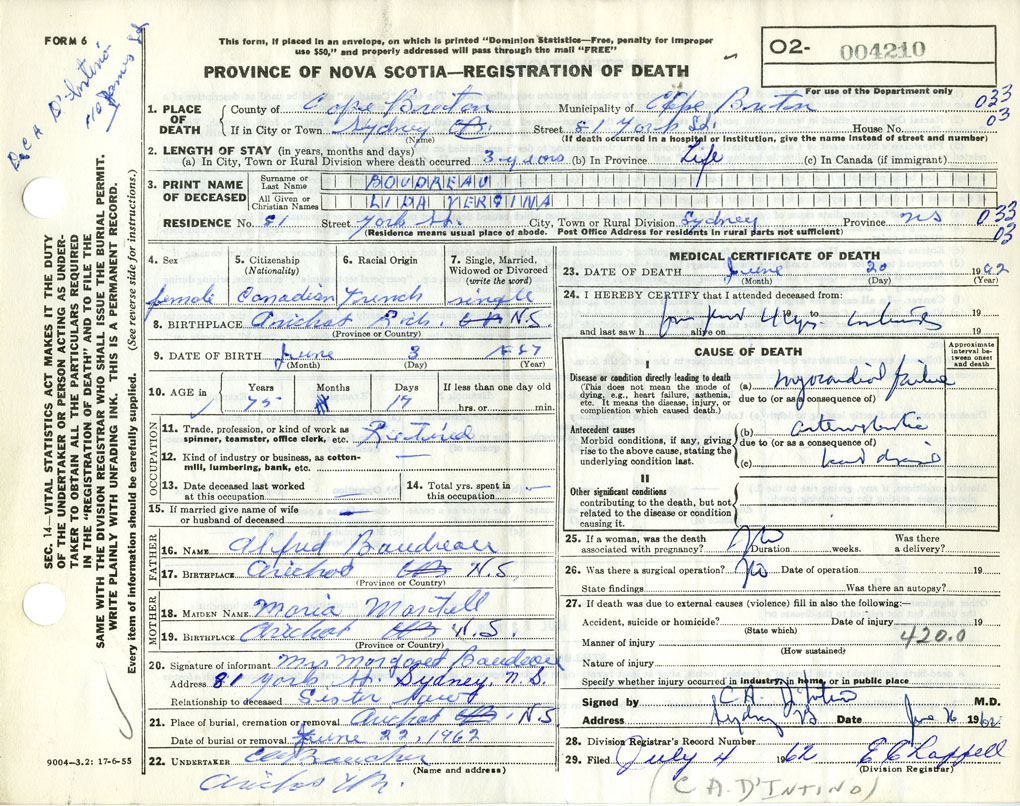 FORM 6
This form, if placed in an envelope, on which is printed "Dominion Statistics—Free, penalty for improper
use $50," and properly addressed will pass through the mail "FREE"
PROVINCE OF NOVA SCOTIA—REGISTRATION OF DEATH
O2- 004210
For use of the Department only
033
03
1. PLACE OF DEATH County of Cape Breton Municipality of Cape Breton
If in City or Town Sydney Street 81 York St. House No.
(Name) (If death occurred in a hospital or institution, give the name instead of street and number)
2. LENGTH OF STAY (in years, months and days)
(a) In City, Town or Rural Division where death occurred 3 years (b) In Province Life (c) In Canada (if immigrant)
3. PRINT NAME OF DECEASED
Surname or Last Name BOUDREAU
All Given or Christian Names LIDA VERGINA
RESIDENCE No. 81 Street York St. City, Town or Rural Division Sydney Province NS
(Residence means usual place of abode. Post Office Address for residents in rural parts not sufficient)
033
03
4. Sex female
5. Citizenship (Nationality) Canadian
6. Racial Origin French
7. Single, Married, Widowed or Divorced (write the word) single
8. BIRTHPLACE Arichat Rich. N.S.
(Province or Country)
9. DATE OF BIRTH June 3
(Month) (Day) (Year)
10. AGE in Years 75 Months Days 17 If less than one day old hrs. or min.
OCCUPATION
11. Trade, profession, or kind of work as spinner, teamster, office clerk, etc. Rietired
12. Kind of industry or business, as cotton-mill, lumbering, bank, etc. —
13. Date deceased last worked at this occupation —
14. Total yrs. spent in this occupation —
15. If married give name of wife or husband of deceased —
FATHER
16. NAME Alfred Boudreau
17. BIRTHPLACE Arichat N.S.
(Province or Country)
MOTHER
18. MAIDEN NAME Maria Martell
19. BIRTHPLACE Arichat N.S.
(Province or Country)
20. Signature of informant Mrs Margaret Boudreau
Address 81 York St. Sydney, N.S.
Relationship to deceased Sister Law
21. Place of burial, cremation or removal Arichat N.S.
Date of burial or removal June 22, 1962
22. UNDERTAKER
(Name and address)
MEDICAL CERTIFICATE OF DEATH
23. DATE OF DEATH June 20 1962
(Month) (Day) (Year)
24. I HEREBY CERTIFY that I attended deceased from:
19 to 19
and last saw h alive on 19
CAUSE OF DEATH
Approximate interval between onset and death
I
Disease or condition directly leading to death
(This does not mean the mode of dying, e.g., heart failure, asthenia, etc. It means the disease, injury, or complication which caused death.)
(a) myocardial failure
due to (or as a consequence of)
Antecedent causes
Morbid conditions, if any, giving rise to the above cause, stating the underlying condition last.
(b) arteriosclerotic
due to (or as a consequence of)
(c) heart disease
II
Other significant conditions
contributing to the death, but not related to the disease or condition causing it.
25. If a woman, was the death associated with pregnancy? No Duration weeks. Was there a delivery?
26. Was there a surgical operation? No Date of operation 19
State findings Was there an autopsy?
27. If death was due to external causes (violence) fill in also the following:—
Accident, suicide or homicide? Date of injury 19
(State which)
420.0
Manner of injury
(How sustained)
Nature of injury
Specify whether injury occurred in industry, in home, or in public place
Signed by C A. D'Intino M.D.
Address Sydney NS Date June 26 1962
28. Division Registrar's Record Number
29. Filed July 4 1962 E C Chappell
(Division Registrar)
(C A. D'INTINO)
9004—3.2: 17-6-55
SEC. 14—VITAL STATISTICS ACT MAKES IT THE DUTY
OF THE UNDERTAKER OR PERSON ACTING AS UNDER-
TAKER TO OBTAIN ALL THE PARTICULARS REQUIRED
IN THE "REGISTRATION OF DEATH" AND TO FILE THE
SAME WITH THE DIVISION REGISTRAR WHO SHALL ISSUE THE BURIAL PERMIT.
WRITE PLAINLY WITH UNFADING INK. THIS IS A PERMANENT RECORD.
Every item of information should be carefully supplied. (See reverse side for instructions.)